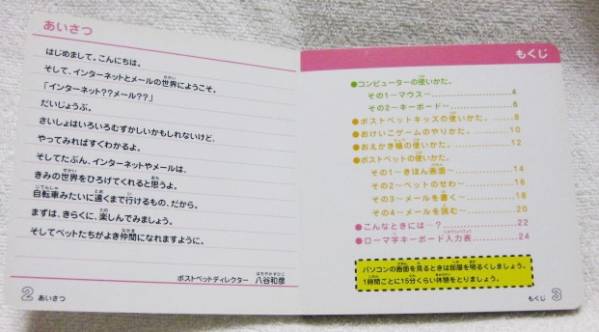 あいさつ
はじめまして。こんにちは。
そして、インターネットとメールの世界にようこそ。
「インターネット??メール??」
だいじょうぶ。
さいしょはいろいろむずかしいかもしれないけど、
やってみればすぐわかるよ。
そしてたぶん、インターネットやメールは、
きみの世界をひろげてくれると思うよ。
自転車みたいに遠くまで行けるもの、だから。
まずは、きらくに、楽しんでみましょう。
そしてペットたちがよき仲間になれますように。
ポストペットディレクター 八谷和彦
2 あいさつ
もくじ
●コンピューターの使いかた。
その1−マウス〜 4
その2−キーボード〜 6
●ポストペットキッズの使いかた。 8
●おけいこゲームのやりかた。 10
●おえかき帳の使いかた。 12
●ポストペットの使いかた。
その1−きほん画面〜 14
その2−ペットのせわ〜 16
その3−メールを書く〜 18
その4−メールを読む〜 20
●こんなときには…? 22
●ローマ字キーボード入力表 24
パソコンの画面を見るときは部屋を明るくしましょう。
1時間ごとに15分くらい休憩をとりましょう。
もくじ 3